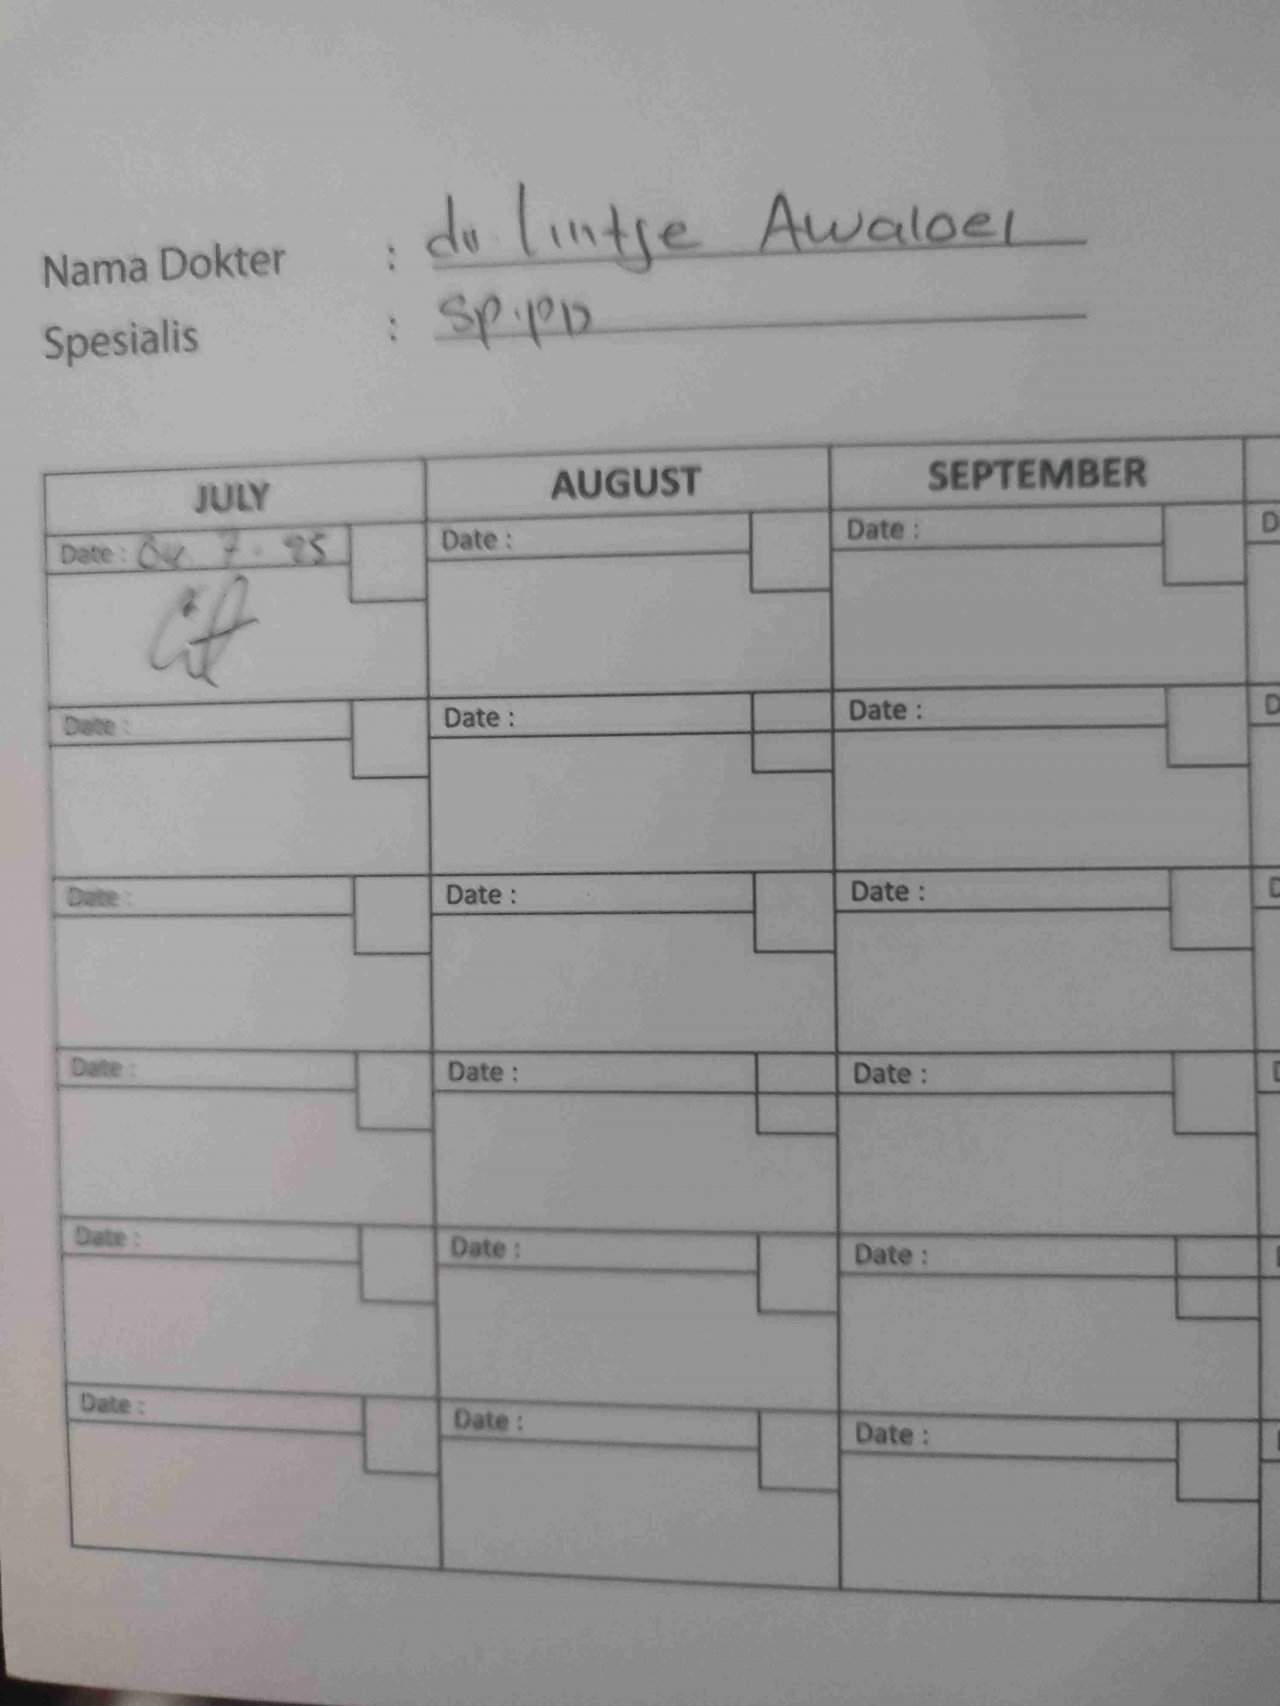 Nama Dokter : dr. lintje Awaloei
Spesialis : sp.pD
JULY AUGUST SEPTEMBER
Date : 04. 7. 25 Date : Date : D
Date : Date : Date : D
Date : Date : Date : D
Date : Date : Date : D
Date : Date : Date :
Date : Date : Date :